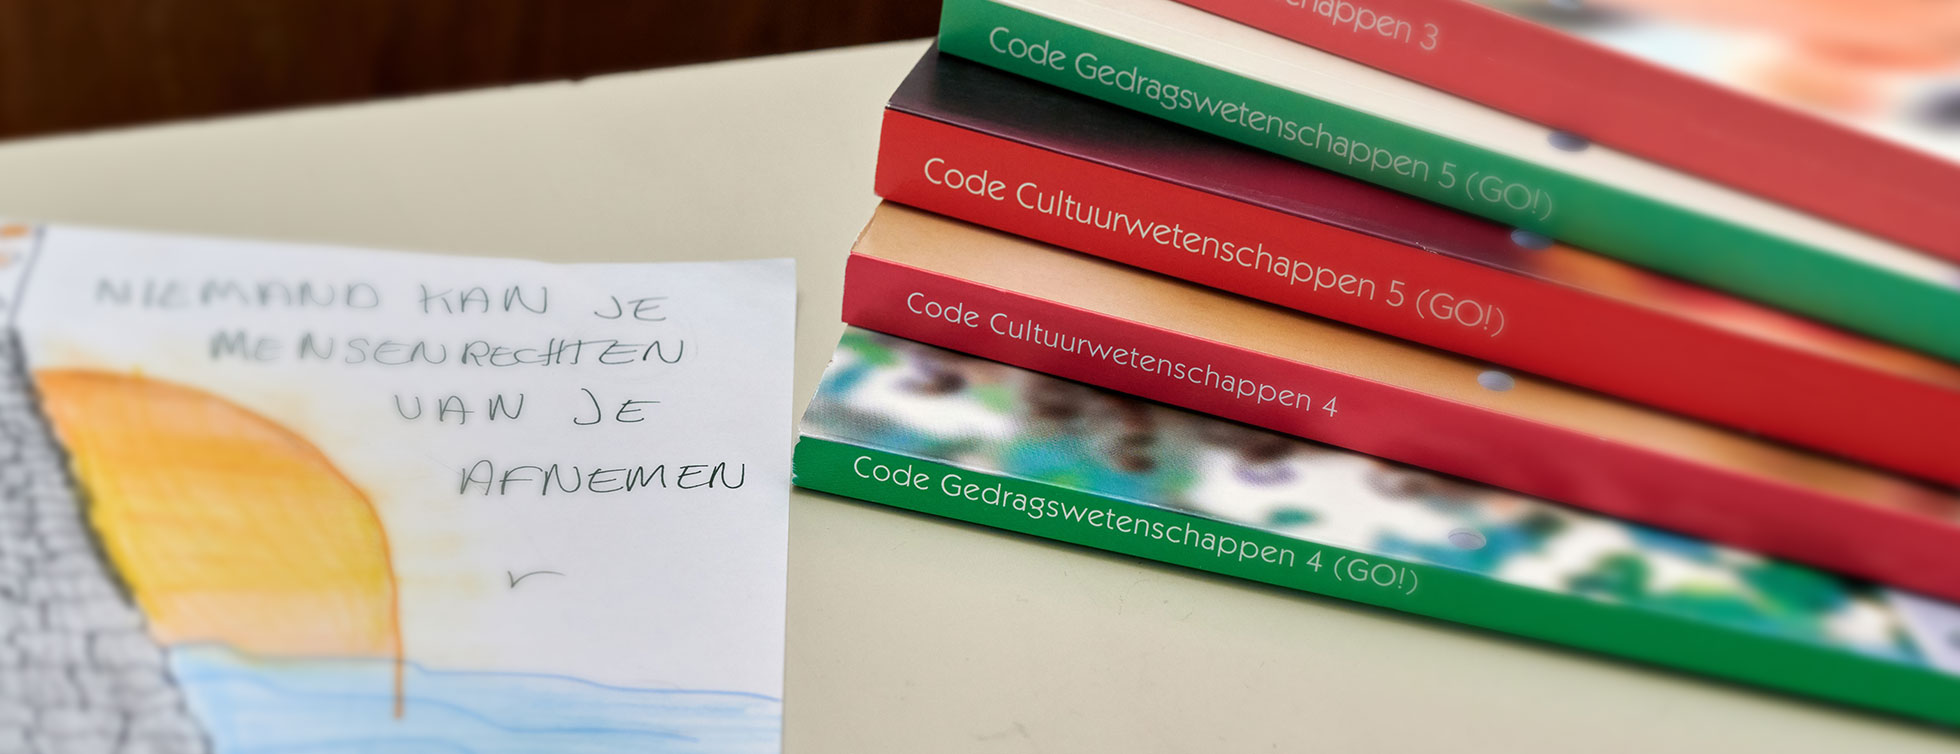 NIEMAND KAN JE
MENSENRECHTEN
VAN JE
AFNEMEN
3
Code Gedragswetenschappen 5 (GO!)
Code Cultuurwetenschappen 5 (GO!)
Code Cultuurwetenschappen 4
Code Gedragswetenschappen 4 (GO!)